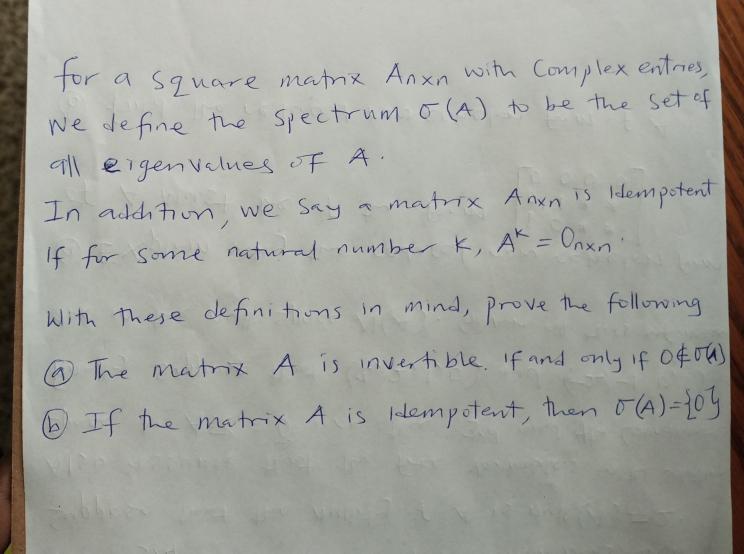 for a square matrix Anxn with Complex entries,
We define the Spectrum σ(A) to be the set of
all eigenvalues of A.
In addition, we say a matrix Anxn is Idempotent
If for some natural number K, A^K = Onxn.
With these definitions in mind, prove the following
ⓐ The matrix A is invertible. If and only if 0∉σ(A)
ⓑ If the matrix A is Idempotent, then σ(A)={0}